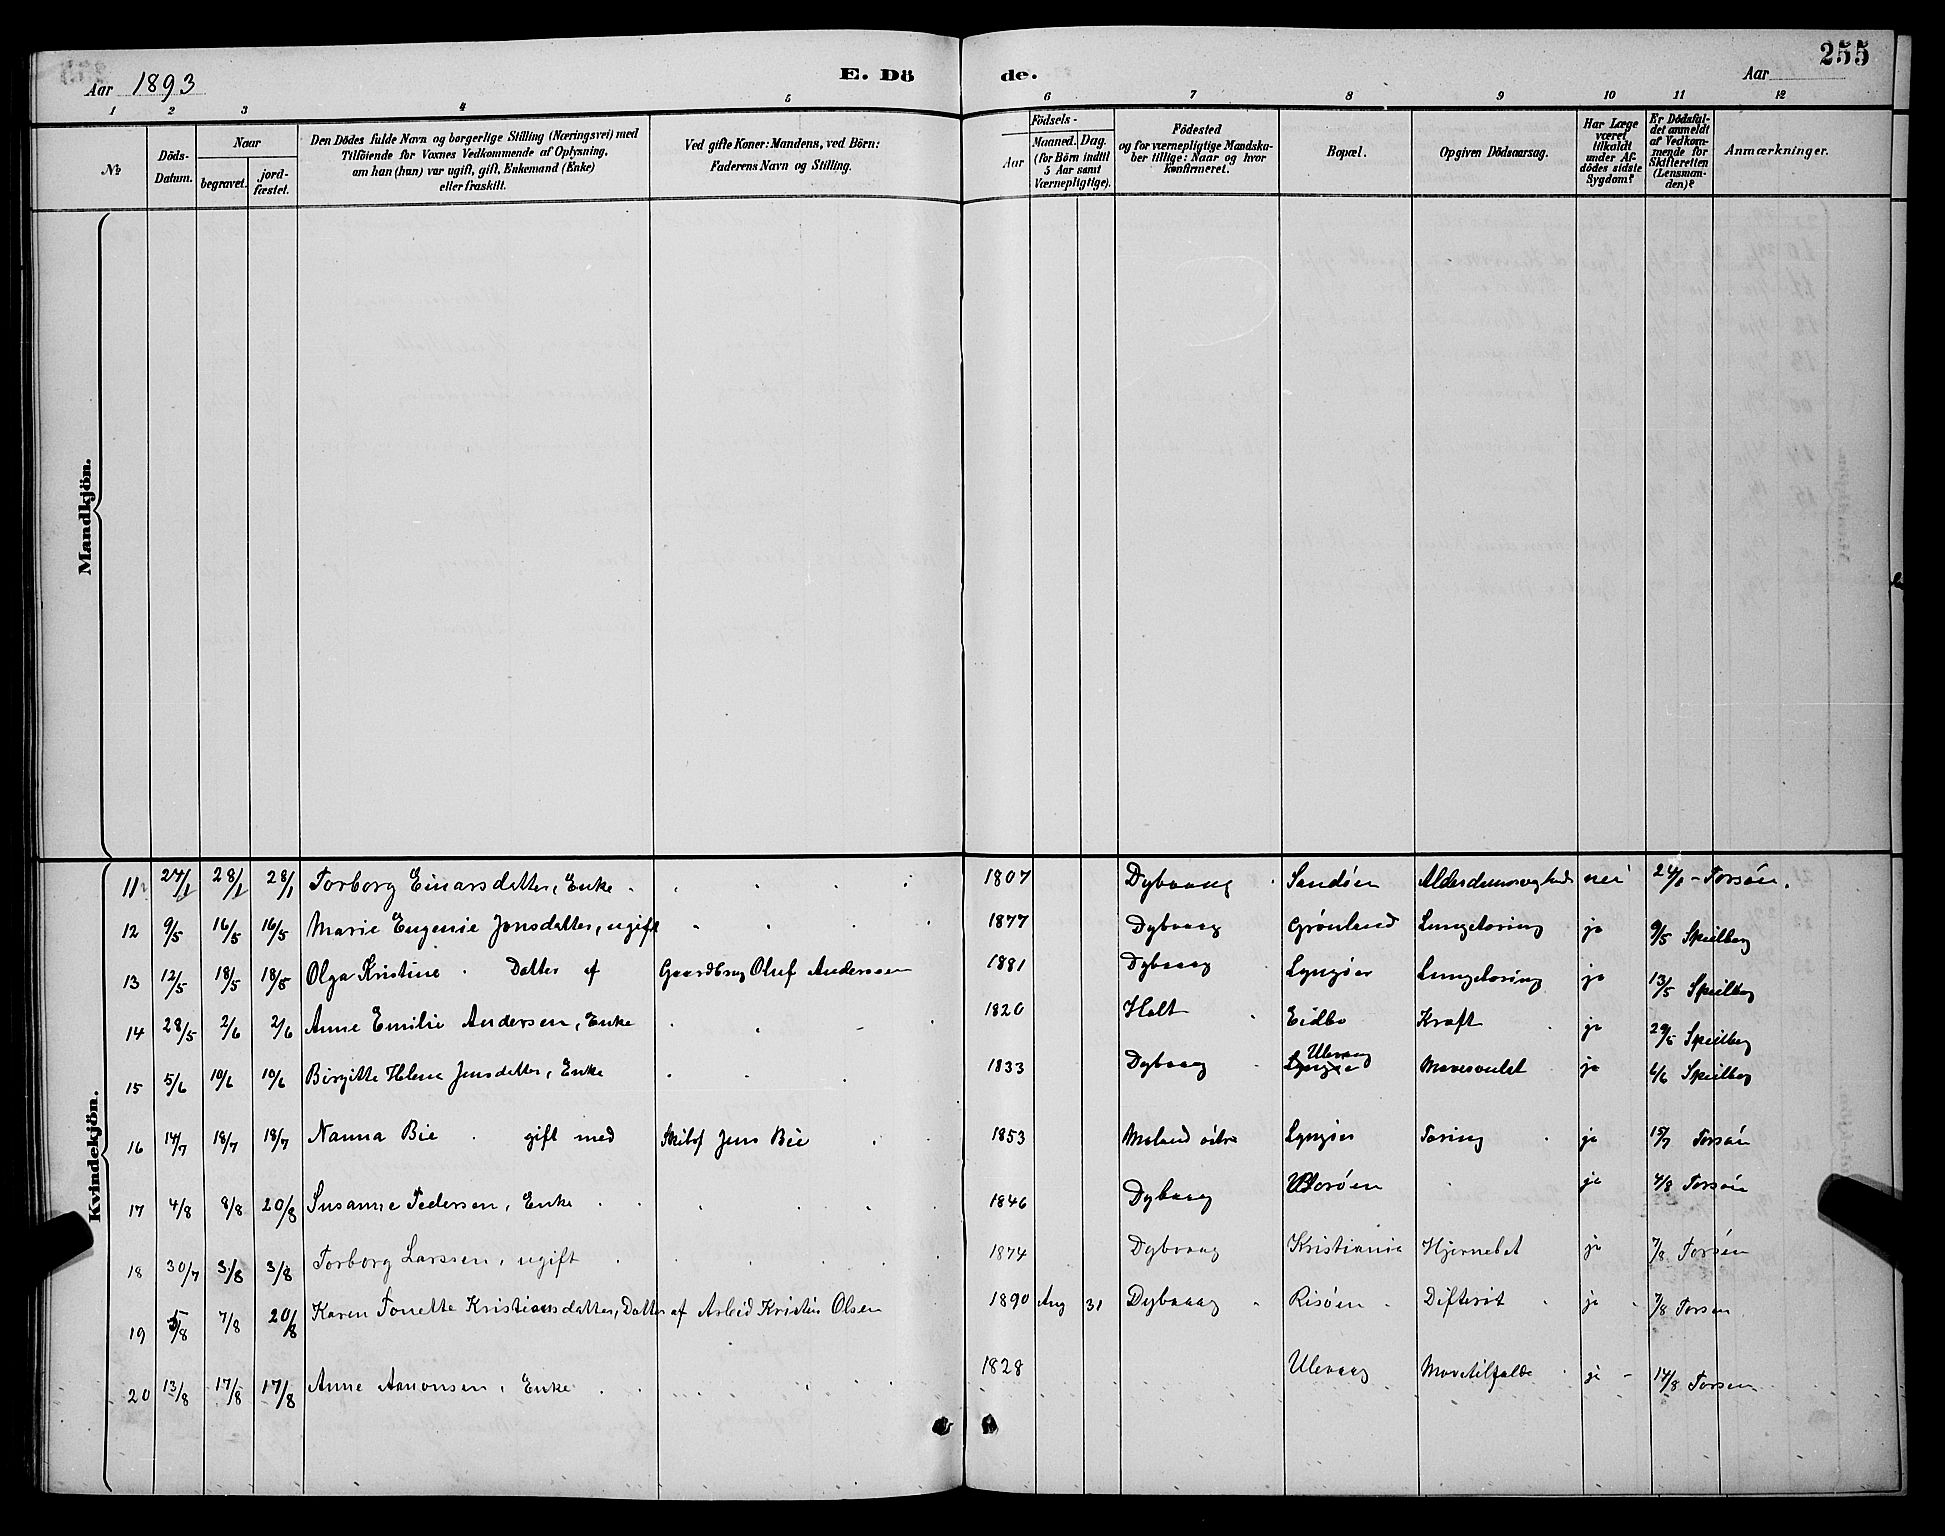 255
Aar 1893 E. Dö de. Aar
1 2 3 4 5 6 7 8 9 10 11 12
№
Döds-Datum.
Naar begravet. jordfæstet.
Den Dödes fulde Navn og borgerlige Stilling (Næringsvei) med Tilföiende for Voxnes Vedkommende af Oplysning, om han (hun) var ugift, gift, Enkemand (Enke) eller fraskilt.
Ved gifte Koner: Mandens, ved Börn: Faderens Navn og Stilling.
Födsels-
Aar Maaned. Dag. (for Börn indtil 5 Aar samt Værnepligtige).
Födested og for værnepligtige Mandskaber tillige: Naar og hvor Konfirmeret.
Bopæl.
Opgiven Dödsaarsag.
Har Læge været tilkaldt under Afdödes sidste Sygdom?
Er Dödsfaldet anmeldt af Vedkommende for Skifteretten (Lensmanden)?
Anmærkninger.
Mandkjön.
Kvindekjön.
11 24/1 28/1 28/1 Torborg Einarsdatter, Enke 1807 Dybvaag Sandöen nei Torsön.
12 9/5 16/5 16/5 Marie Eugenie Jonsdatter, ugift 1877 Dybvaag Grönland Lungetæring ja 9/5 Speilberg
13 12/5 18/5 18/5 Olga Kristine Datter af Gaardbrug Oluf Anderssen 1881 Dybvaag Lyngöer Lungetæring ja 13/5 Speilberg
14 28/5 2/6 2/6 Anne Emilie Andersen, Enke 1820 Holt Eidbo Kræft ja 29/5 Speilberg
15 5/6 10/6 10/6 Birgitte Helene Jensdatter, Enke 1833 Dybvaag Ulevaag Mavesvulst ja 6/6 Speilberg
16 14/7 18/7 18/7 Nanna Bie gift med Skibsf Jens Bie 1853 Moland östre Lyngöer Tæring ja 15/7 Torsön
17 4/8 8/8 20/8 Susanne Pedersen, Enke 1846 Dybvaag Borøen ja 4/8 Torsön
18 30/7 3/8 3/8 Torborg Larssen, ugift 1874 Dybvaag Kristiania Hjernebet ja 7/8 Torsön
19 5/8 7/8 20/8 Karen Tonette Kristiansdatter, Datter af Arbeid Kristin Olsen 1890 Aug 31 Dybvaag Risöen Difterit ja 7/8 Torsen
20 13/8 17/8 17/8 Anne Aanonsen, Enke 1828 Ulevaag Mavetilfælde ja 14/8 Torsen